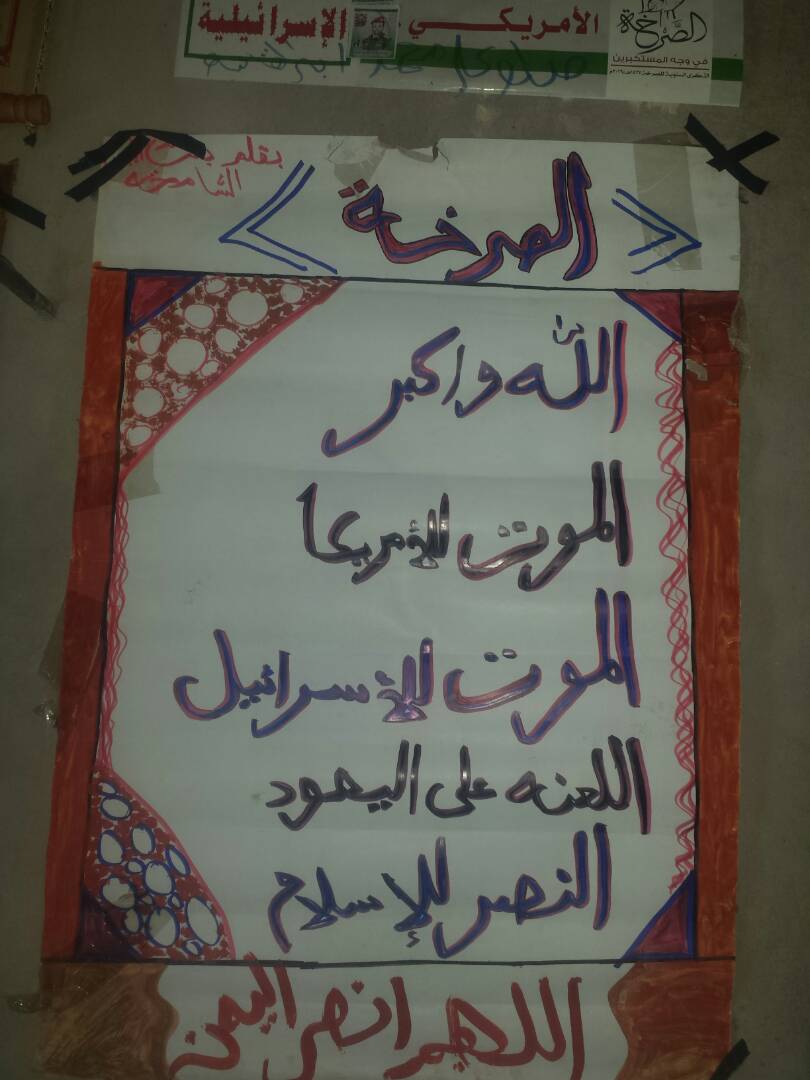 الأمريكي
الإسرائيلية
الصرخة
في وجه المستكبرين
بقلم
الصرخة
الله واكبر
الموت للأمريكا
الموت للإسرائيل
اللعنه على اليهود
النصر للإسلام
اللهم انصر اليمن